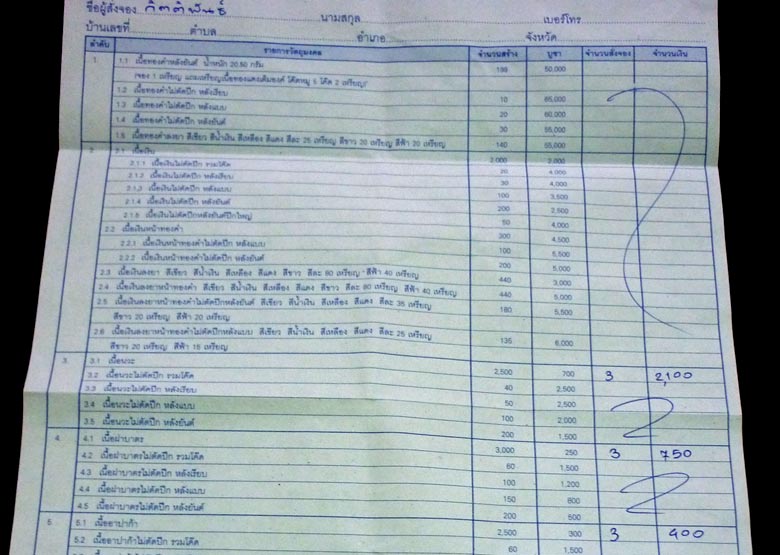 ชื่อผู้สั่งจอง กิตติพันธ์ นามสกุล เบอร์โทร
บ้านเลขที่ ตำบล อำเภอ จังหวัด
ลำดับ รายการวัตถุมงคล จำนวนสร้าง บูชา จำนวนสั่งจอง จำนวนเงิน
1. 1.1 เนื้อทองคำหลังยันต์ น้ำหนัก 20.50 กรัม 199 50,000
(จอง 1 เหรียญ แถมเหรียญเนื้อทองแดงเต็มองค์ โค๊ตหมู 5 โค๊ต 2 เหรียญ)
1.2 เนื้อทองคำไม่ตัดปีก หลังเรียบ 10 65,000
1.3 เนื้อทองคำไม่ตัดปีก หลังแบบ 20 60,000
1.4 เนื้อทองคำไม่ตัดปีก หลังยันต์ 30 55,000
1.5 เนื้อทองคำลงยา สีเขียว สีน้ำเงิน สีเหลือง สีแดง สีละ 25 เหรียญ สีขาว 20 เหรียญ สีฟ้า 20 เหรียญ 140 55,000
2. 2.1 เนื้อเงิน 2,000 2,000
2.1.1 เนื้อเงินไม่ตัดปีก รวมโค๊ต 20 4,000
2.1.2 เนื้อเงินไม่ตัดปีก หลังเรียบ 30 4,000
2.1.3 เนื้อเงินไม่ตัดปีก หลังแบบ 100 3,500
2.1.4 เนื้อเงินไม่ตัดปีก หลังยันต์ 200 2,500
2.1.5 เนื้อเงินไม่ตัดปีกหลังยันต์ปีกใหญ่ 50 4,000
2.2 เนื้อเงินหน้าทองคำ 300 4,500
2.2.1 เนื้อเงินหน้าทองคำไม่ตัดปีก หลังแบบ 100 5,500
2.2.2 เนื้อเงินหน้าทองคำไม่ตัดปีก หลังยันต์ 200 5,000
2.3 เนื้อเงินลงยา สีเขียว สีน้ำเงิน สีเหลือง สีแดง สีขาว สีละ 80 เหรียญ สีฟ้า 40 เหรียญ 440 3,000
2.4 เนื้อเงินลงยาหน้าทองคำ สีเขียว สีน้ำเงิน สีเหลือง สีแดง สีขาว สีละ 80 เหรียญ สีฟ้า 40 เหรียญ 440 5,000
2.5 เนื้อเงินลงยาหน้าทองคำไม่ตัดปีกหลังยันต์ สีเขียว สีน้ำเงิน สีเหลือง สีแดง สีละ 35 เหรียญ 180 5,500
สีขาว 20 เหรียญ สีฟ้า 20 เหรียญ
2.6 เนื้อเงินลงยาหน้าทองคำไม่ตัดปีกหลังแบบ สีเขียว สีน้ำเงิน สีเหลือง สีแดง สีละ 25 เหรียญ 135 6,000
สีขาว 20 เหรียญ สีฟ้า 15 เหรียญ
3. 3.1 เนื้อนวะ 2,500 700 3 2,100
3.2 เนื้อนวะไม่ตัดปีก รวมโค๊ต 40 2,500
3.3 เนื้อนวะไม่ตัดปีก หลังเรียบ 50 2,500
3.4 เนื้อนวะไม่ตัดปีก หลังแบบ 100 2,000
3.5 เนื้อนวะไม่ตัดปีก หลังยันต์ 200 1,500
4. 4.1 เนื้อฝาบาตร 3,000 250 3 750
4.2 เนื้อฝาบาตรไม่ตัดปีก รวมโค๊ต 60 1,500
4.3 เนื้อฝาบาตรไม่ตัดปีก หลังเรียบ 100 1,200
4.4 เนื้อฝาบาตรไม่ตัดปีก หลังแบบ 150
4.5 เนื้อฝาบาตรไม่ตัดปีก หลังยันต์ 200
5. 5.1 เนื้ออาปาก้า 2,500 300 3 900
5.2 เนื้ออาปาก้าไม่ตัดปีก รวมโค๊ต 60 1,500